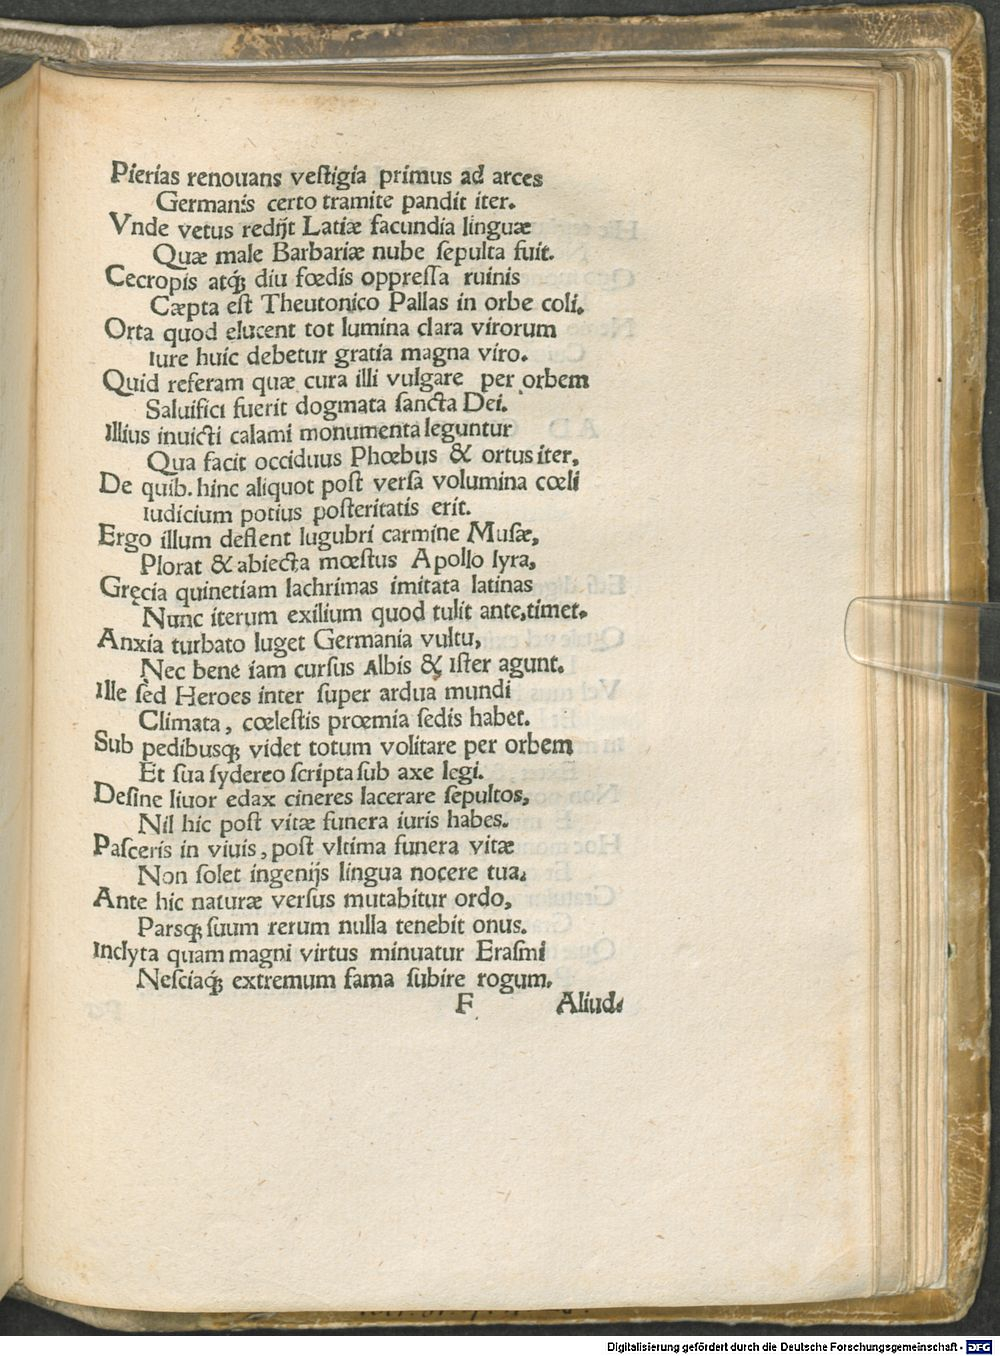 Pierias renouans veſtigia primus ad arces
Germanis certo tramite pandit iter.
Vnde vetus redijt Latiæ facundia linguæ
Quæ male Barbariæ nube ſepulta fuit.
Cecropis atq́; diu fœdis oppreſſa ruinis
Cæpta eſt Theutonico Pallas in orbe coli.
Orta quod elucent tot lumina clara virorum
Iure huic debetur gratia magna viro.
Quid referam quæ cura illi vulgare per orbem
Saluifici fuerit dogmata ſancta Dei.
Illius inuicti calami monumenta leguntur
Qua facit occiduus Phœbus & ortus iter,
De quib. hinc aliquot poſt verſa volumina cœli
Iudicium potius poſteritatis erit.
Ergo illum deflent lugubri carmine Muſæ,
Plorat & abiecta mœſtus Apollo lyra,
Gręcia quinetiam lachrimas imitata latinas
Nunc iterum exilium quod tulit ante, timet.
Anxia turbato luget Germania vultu,
Nec bene iam curſus Albis & Iſter agunt.
Ille ſed Heroes inter ſuper ardua mundi
Climata, cœleſtis prœmia ſedis habet.
Sub pedibusq; videt totum volitare per orbem
Et ſua ſydereo ſcripta ſub axe legi.
Deſine liuor edax cineres lacerare ſepultos,
Nil hic poſt vitæ funera iuris habes.
Paſceris in viuis, poſt vltima funera vitæ
Non ſolet ingenijs lingua nocere tua.
Ante hic naturæ verſus mutabitur ordo,
Parsq; ſuum rerum nulla tenebit onus.
Inclyta quam magni virtus minuatur Eraſmi
Neſciaq́; extremum fama ſubire rogum.
F Aliud.
Digitalisierung gefördert durch die Deutsche Forschungsgemeinschaft - DFG